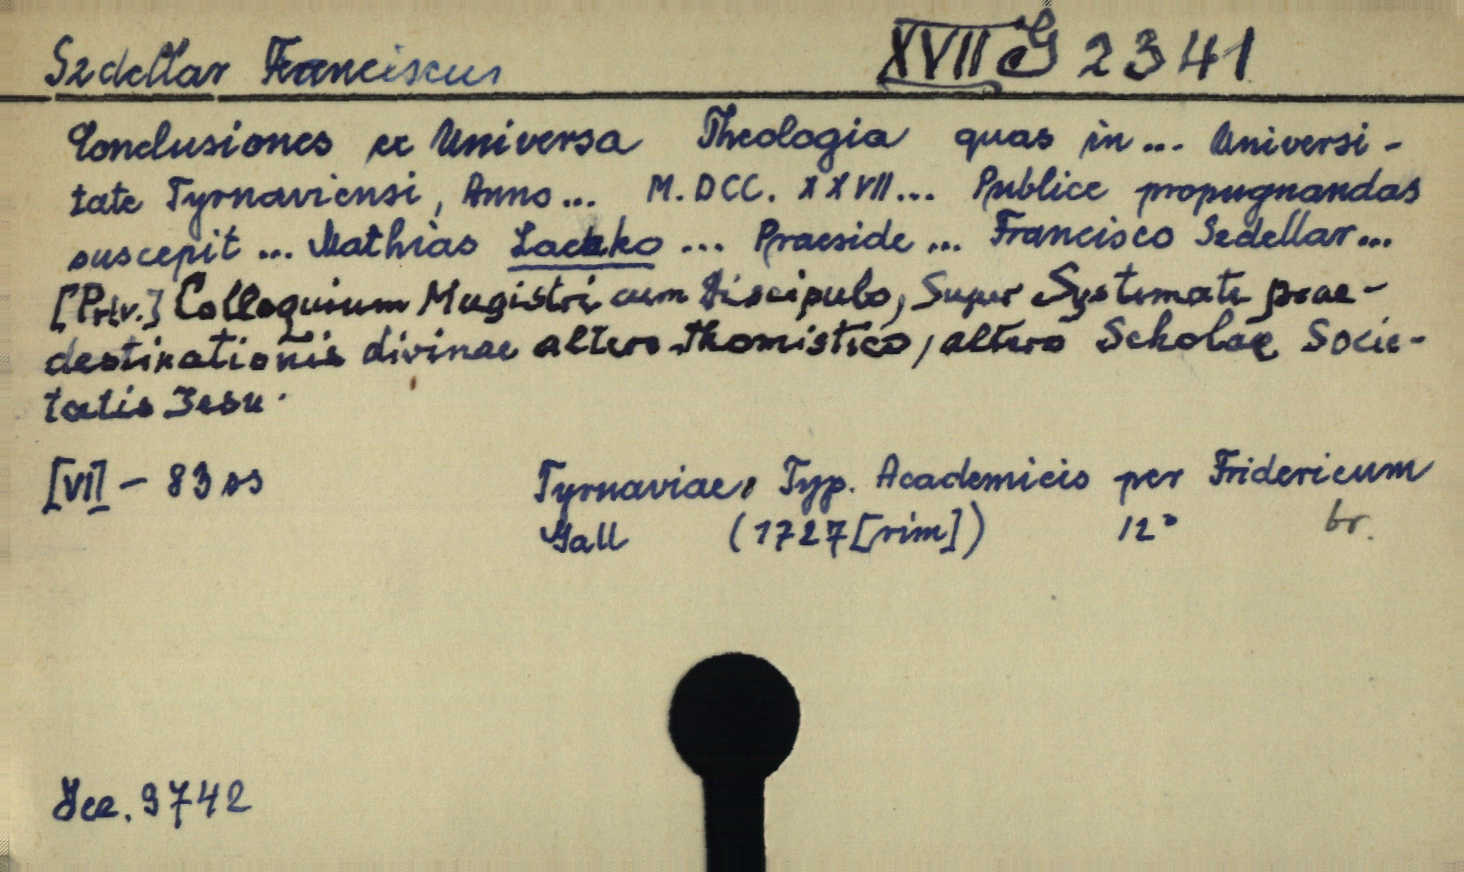 Szdellar Franciscus XVII G 2341
Conclusiones ex Universa Theologia quas in ... Universi-
tate Tyrnaviensi, Anno ... M.DCC.XXVII ... Publice propugnandas
suscepit ... Mathias Laczko ... Praeside ... Francisco Sedellar ...
[Priv.] Colloquium Magistri cum Discipulo, Super Systemate prae-
destinationis divinae altero Thomistico, altero Scholae Socie-
tatis Jesu.
[VI] - 83 ss Tyrnaviae, Typ. Academicis per Fridericum
Gall (1727 [rim]) 12° br.
9742